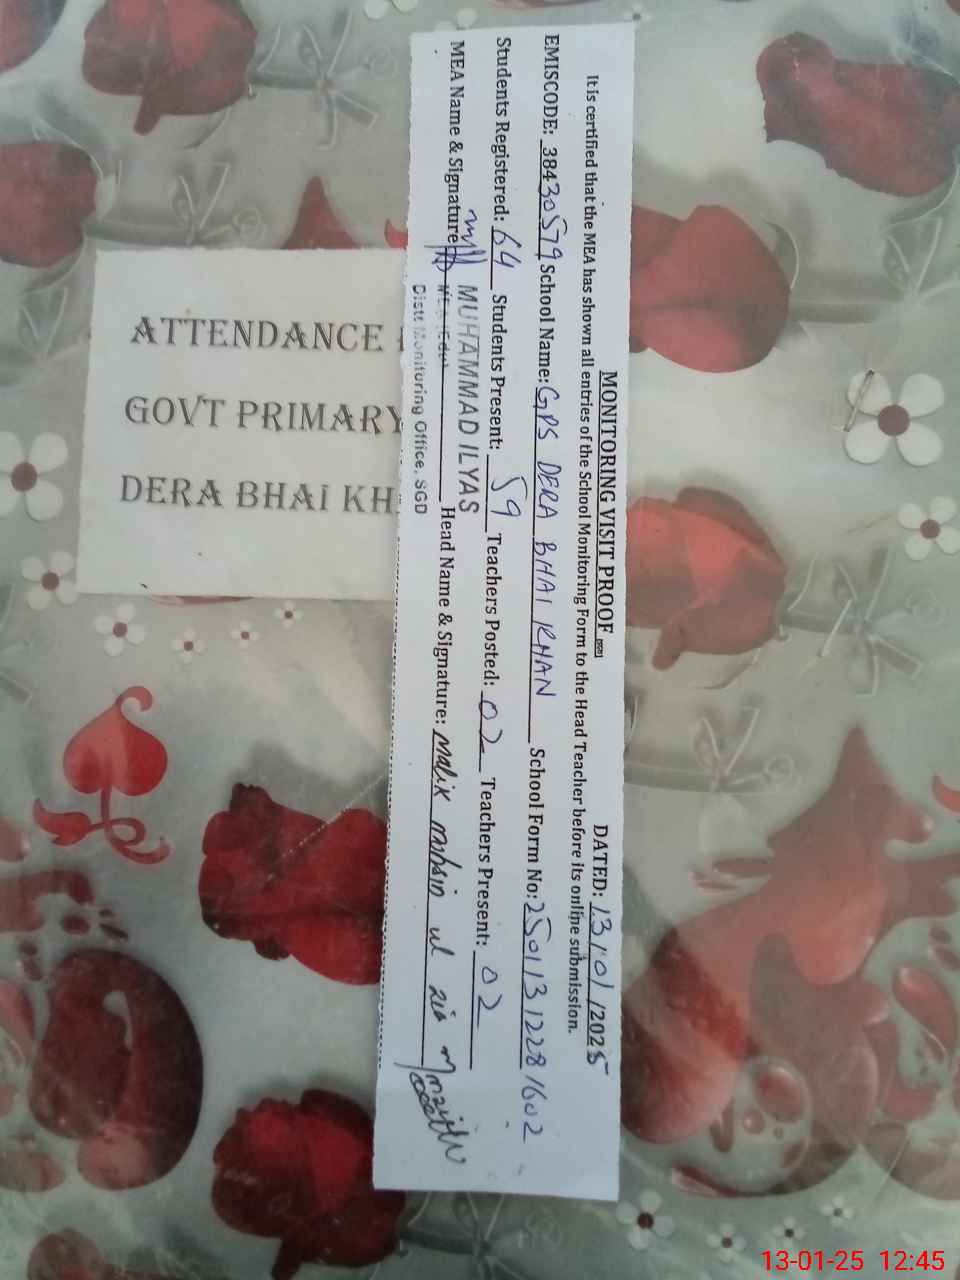 MONITORING VISIT PROOF DATED: 13/01/2025
It is certified that the MEA has shown all entries of the School Monitoring Form to the Head Teacher before its online submission.
EMISCODE: 38430579 School Name: GPS DERA BHAI KHAN School Form No: 25011312281602
Students Registered: 64 Students Present: 59 Teachers Posted: 02 Teachers Present: 02
MEA Name & Signature MUHAMMAD ILYAS Head Name & Signature: Malik mohsin ul zia
Distt Monitoring Office, SGD
ATTENDANCE
GOVT PRIMARY
DERA BHAI KH
13-01-25 12:45